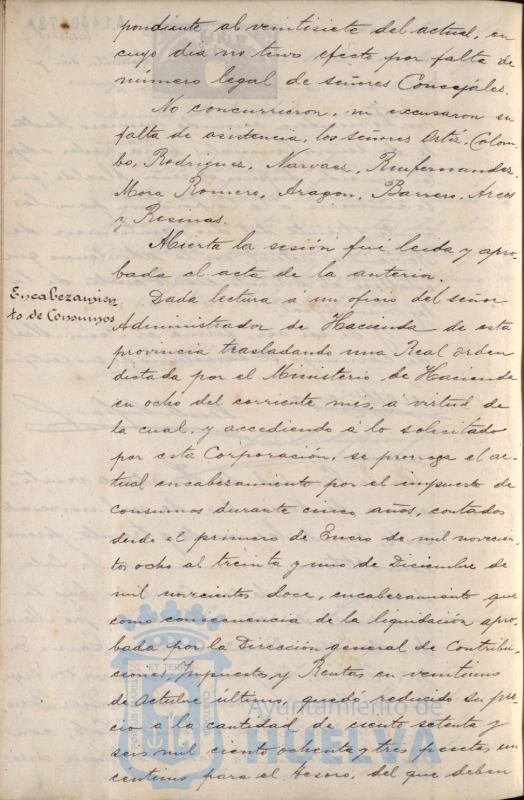 pondiente al veintisiete del actual, en
cuyo dia no tuvo efecto por falta de
número legal de señores Concejales.
No concurrieron, ni excusaron su
falta de asistencia, los señores Ortiz, Colom-
bo, Rodriguez, Narvaez, Rudfernandez,
Mora Romero, Aragon, Barrero, Arcos
y Resinas.
Abierta la sesión fué leida y apro-
bada el acta de la anterior.
Encabezamien
to de Consumos
Dada lectura á un oficio del señor
Administrador de Hacienda de esta
provincia trasladando una Real orden
dictada por el Ministerio de Hacienda
en ocho del corriente mes, á virtud de
la cual, y accediendo á lo solicitado
por esta Corporación, se prorroga el ac-
tual encabezamiento por el impuesto de
consumos durante cinco años, contados
desde el primero de Enero de mil novecien-
tos ocho al treinta y uno de Diciembre de
mil novecientos doce, encabezamiento que
como consecuencia de la liquidación apro-
bada por la Dirección general de Contribu-
ciones, Impuestos y Rentas en veintiuno
de Octubre último, quedó reducido su pre-
cio á la cantidad de ciento setenta y
seis mil ciento ochenta y tres pesetas, un
céntimo para el Tesoro, del que deben
Ayuntamiento de
HUELVA